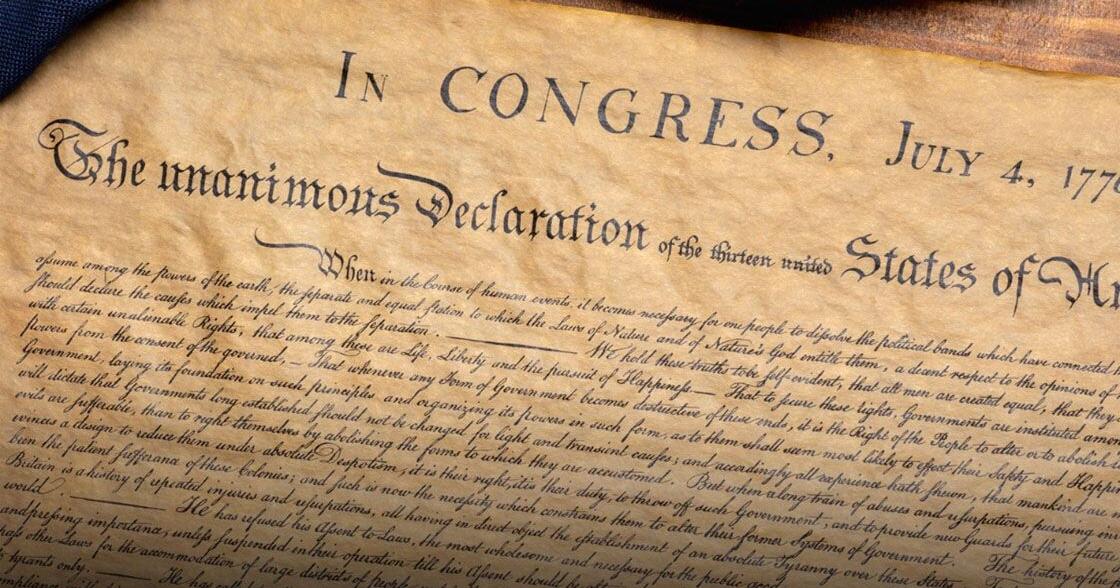 In CONGRESS, July 4, 1776
The unanimous Declaration of the thirteen united States of
When in the Course of human events it becomes necessary for one people to dissolve the political bands which have connected
assume among the powers of the earth, the separate and equal station to which the Laws of Nature and of Nature's God entitle them, a decent respect to the opinions of
should declare the causes which impel them to the separation. We hold these truths to be self-evident, that all men are created equal, that they
with certain unalienable Rights, that among these are Life, Liberty and the pursuit of Happiness — That to secure these rights, Governments are instituted
powers from the consent of the governed, — That whenever any Form of Government becomes destructive of these ends, it is the Right of the People to alter or to abolish
Government, laying its foundation on such principles and organizing its powers in such form, as to them shall seem most likely to effect their Safety and
will dictate that Governments long established should not be changed for light and transient causes; and accordingly all experience hath shewn, that mankind are
evils are sufferable, than to right themselves by abolishing the forms to which they are accustomed. But when a long train of abuses and usurpations, pursuing
evinces a design to reduce them under absolute Despotism, it is their right, it is their duty, to throw off such Government, and to provide new Guards for their future
been the patient sufferance of these Colonies; and such is now the necessity which constrains them to alter their former Systems of Government. The history of the
Britain is a history of repeated injuries and usurpations, all having in direct object the establishment of an absolute Tyranny over these States
world. He has refused his Assent to Laws, the most wholesome and necessary for the public
and pressing importance, unless suspended in their operation till his Assent should be
pass other Laws for the accommodation of large districts of people
tyrants only. He has